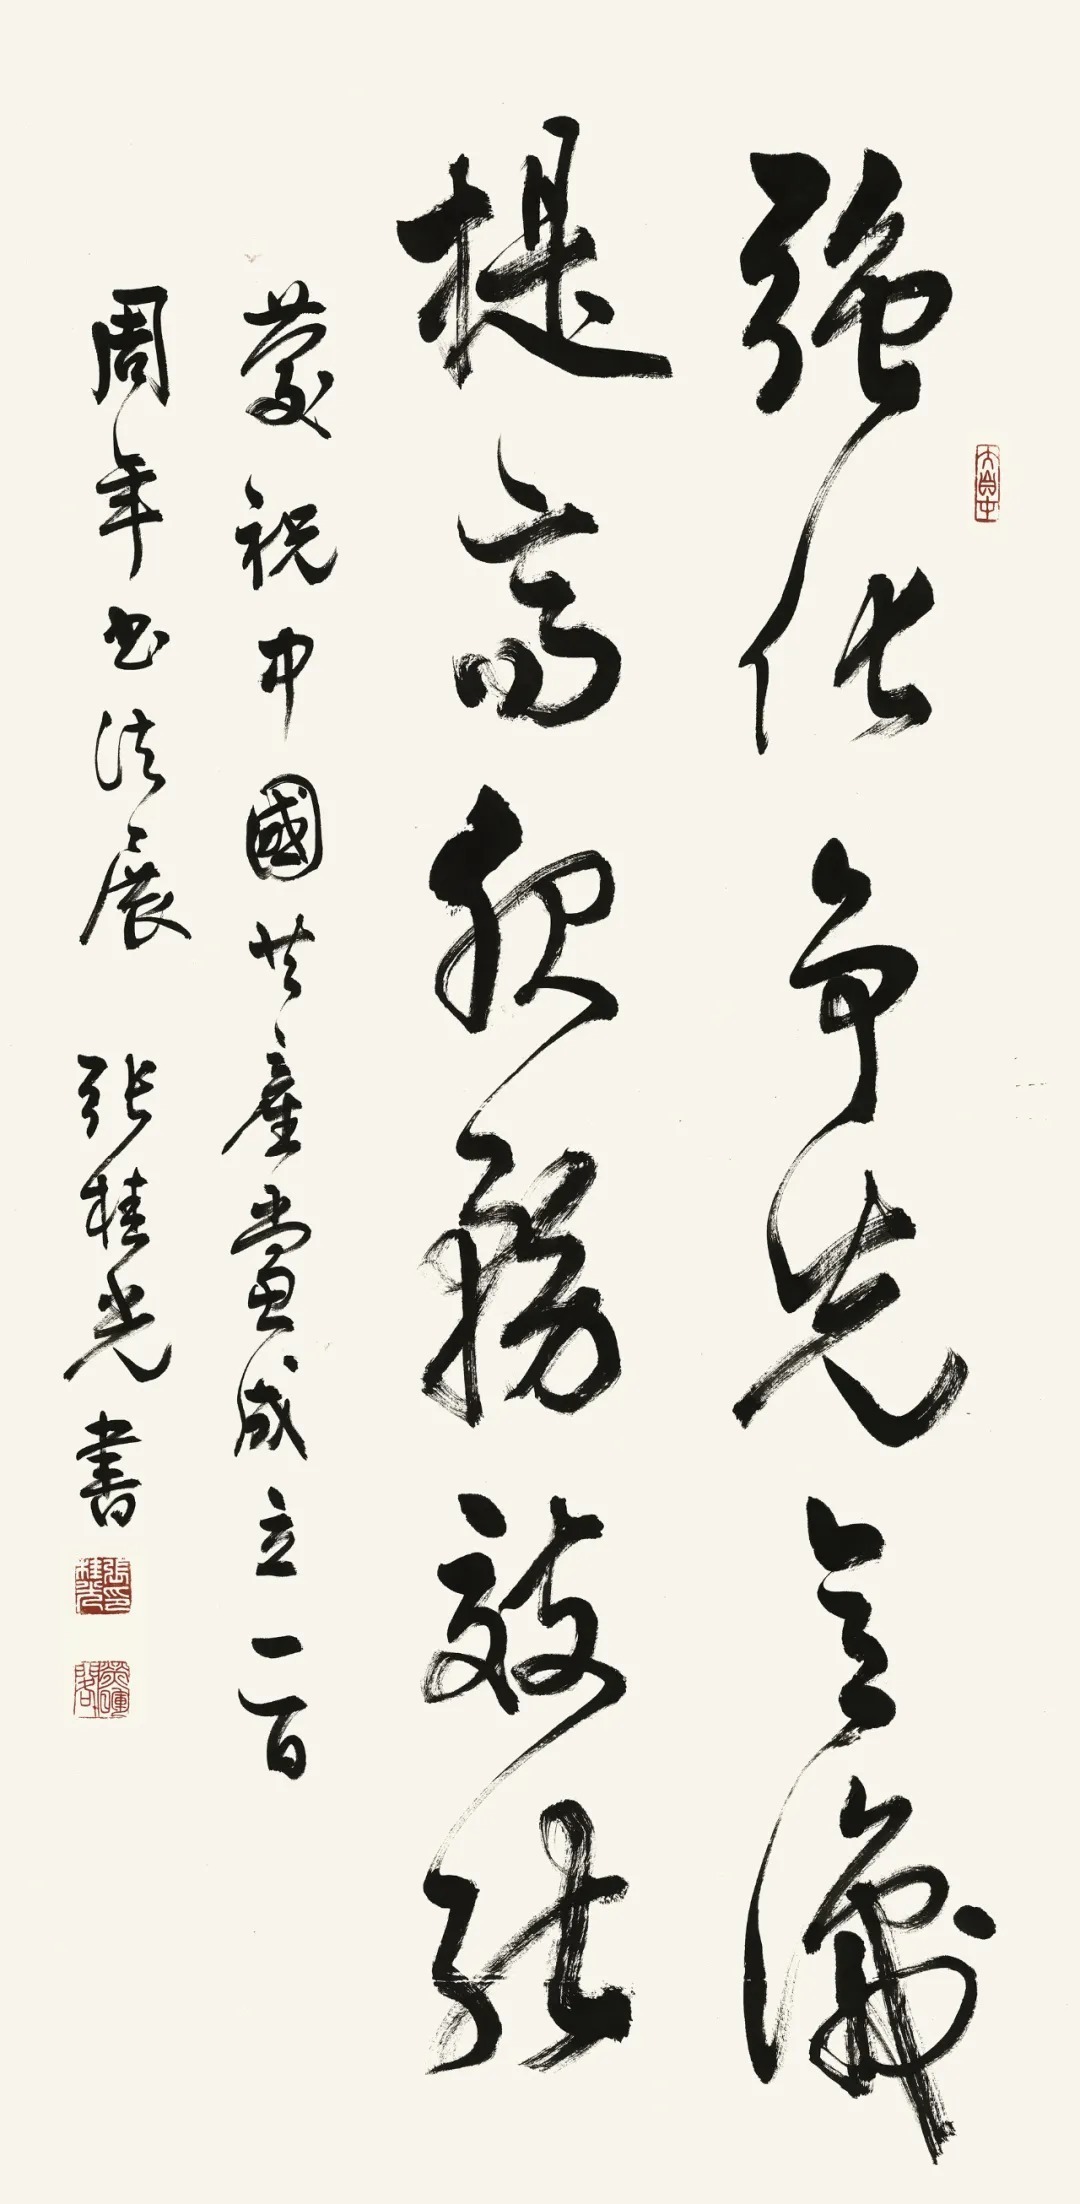 强化争先意识
提高服務效能
慶祝中國共産黨成立一百
周年书法展 張桂光書